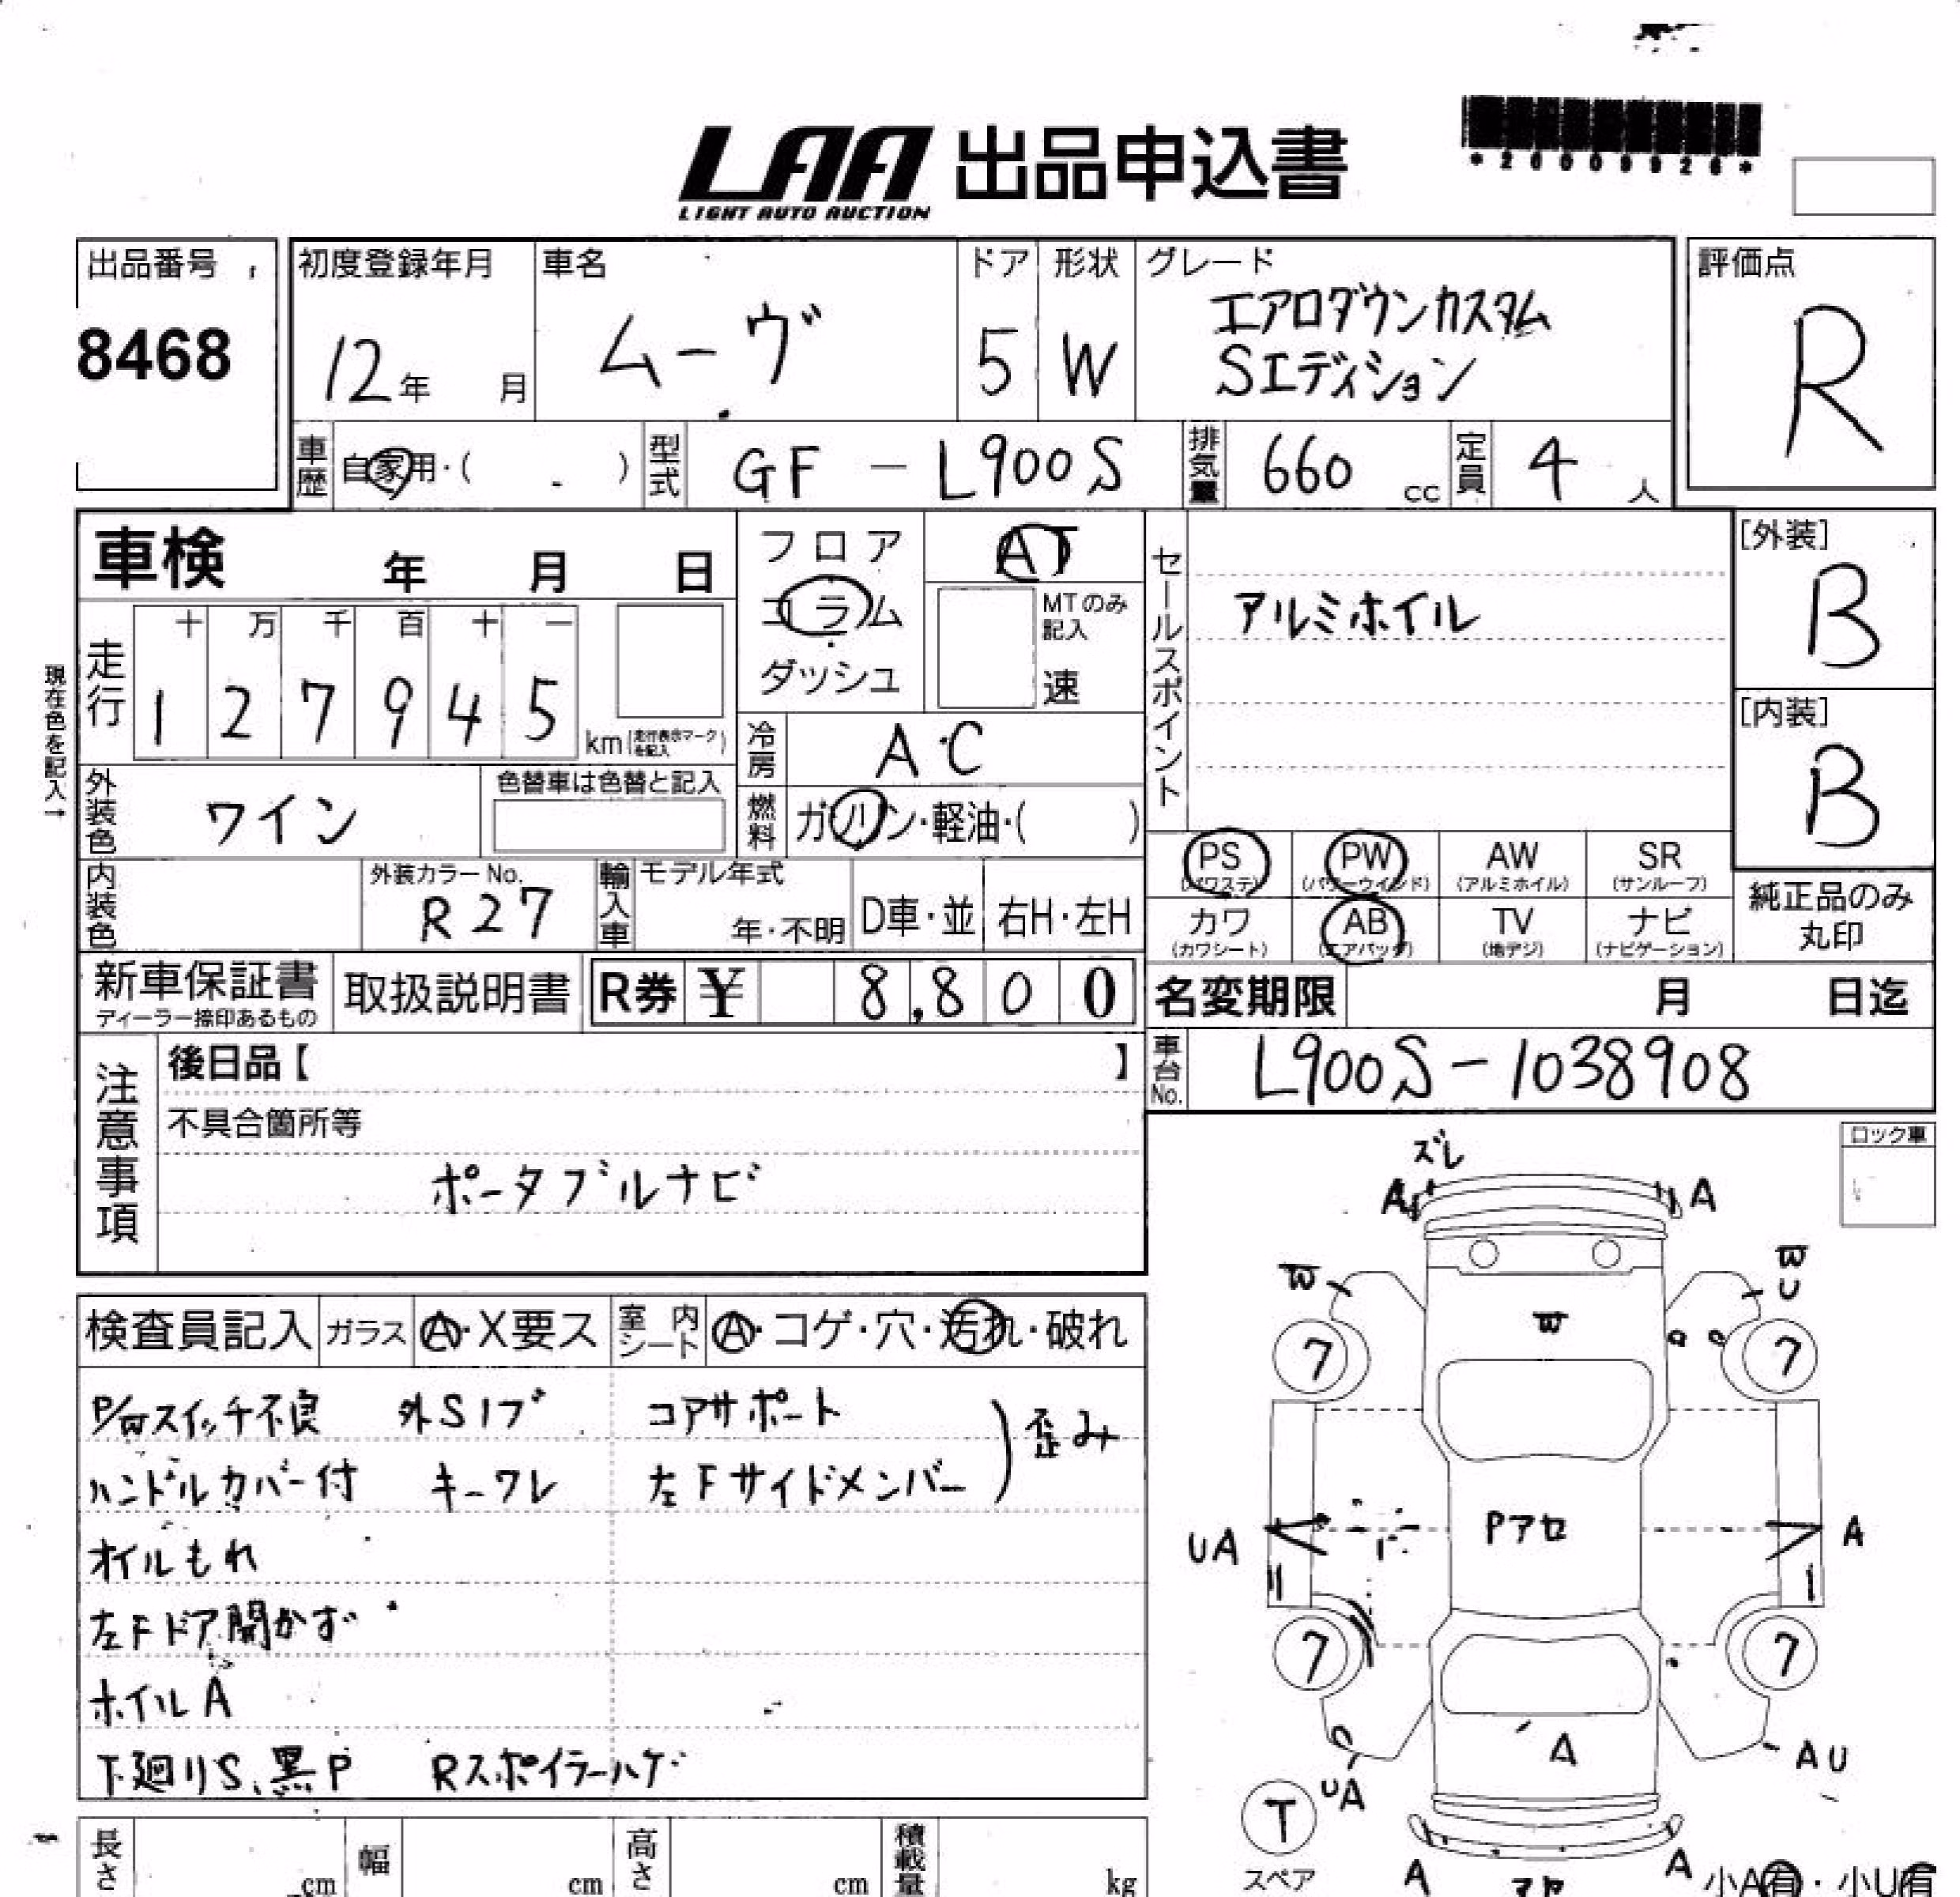 LAA 出品申込書
LIGHT AUTO AUCTION
出品番号
8468
初度登録年月
12年 月
車名
ムーヴ
ドア
5
形状
W
グレード
エアロダウンカスタム
Sエディション
評価点
R
車歴
自家用・( )
型式
GF-L900S
排気量
660 cc
定員
4 人
車検 年 月 日
フロア
コラム
ダッシュ
AT
MTのみ
記入
速
セールスポイント
アルミホイル
[外装]
B
[内装]
B
現在色を記入→
走行
十 万 千 百 十 一
1 2 7 9 4 5
km(走行表示マークを記入)
冷房
A・C
外装色
ワイン
色替車は色替と記入
燃料
ガソリン・軽油・( )
内装色
外装カラーNo.
R27
輸入車
モデル年式
年・不明
D車・並
右H・左H
PS
(パワステ)
PW
(パワーウインド)
AW
(アルミホイル)
SR
(サンルーフ)
カワ
(カワシート)
AB
(エアバッグ)
TV
(地デジ)
ナビ
(ナビゲーション)
純正品のみ
丸印
新車保証書
ディーラー捺印あるもの
取扱説明書
R券 ¥ 8,800
名変期限 月 日迄
車台No.
L900S-1038908
注意事項
後日品【 】
不具合箇所等
ポータブルナビ
ロック車
検査員記入
ガラス
A・X要ス
室内シート
A・コゲ・穴・汚れ・破れ
スイッチ不良
コアサポート
歪み
ハンドルカバー付 キーワレ
左Fサイドメンバー
オイルもれ
左Fドア開かず
ホイルA
下廻りS、黒P Rスポイラーハゲ
ズレ
A A
W W
U
W
7 7
Pアセ
UA A
7 7
A
UA AU
T
スペア
A A
小A有・小U有
長さ cm
幅 cm
高さ cm
積載量 kg